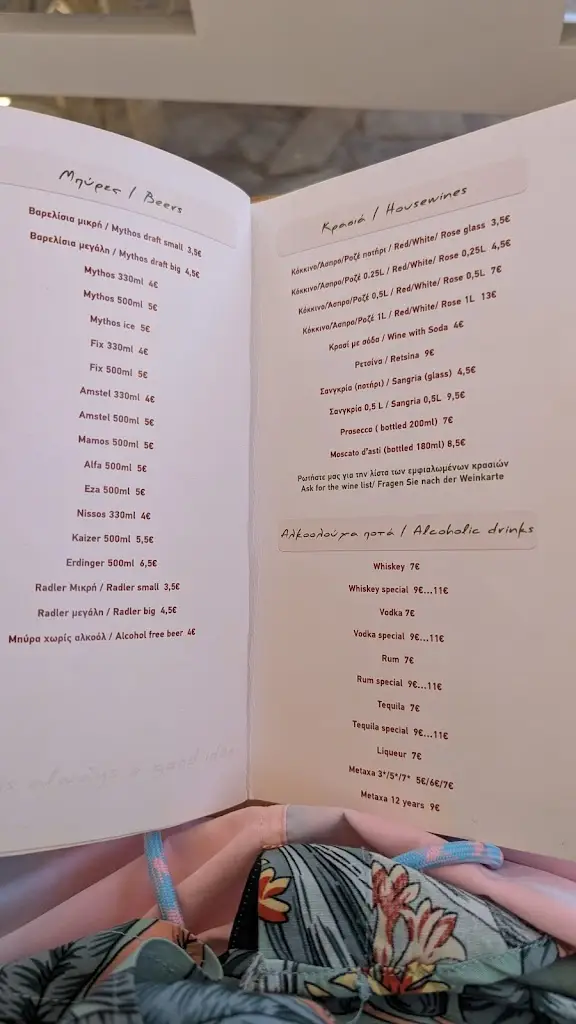 Μπύρες / Beers
Βαρελίσια μικρή / Mythos draft small 3,5€
Βαρελίσια μεγάλη / Mythos draft big 4,5€
Mythos 330ml 4€
Mythos 500ml 5€
Mythos ice 5€
Fix 330ml 4€
Fix 500ml 5€
Amstel 330ml 4€
Amstel 500ml 5€
Mamos 500ml 5€
Alfa 500ml 5€
Eza 500ml 5€
Nissos 330ml 4€
Kaizer 500ml 5,5€
Erdinger 500ml 6,5€
Radler Μικρή / Radler small 3,5€
Radler μεγάλη / Radler big 4,5€
Μπύρα χωρίς αλκοόλ / Alcohol free beer 4€
Κρασιά / Housewines
Κόκκινο/Άσπρο/Ροζέ ποτήρι / Red/White/ Rose glass 3,5€
Κόκκινο/Άσπρο/Ροζέ 0.25L / Red/White/ Rose 0,25L 4,5€
Κόκκινο/Άσπρο/Ροζέ 0,5L / Red/White/ Rose 0,5L 7€
Κόκκινο/Άσπρο/Ροζέ 1L / Red/White/ Rose 1L 13€
Κρασί με σόδα / Wine with Soda 4€
Ρετσίνα / Retsina 9€
Σανγκρία (ποτήρι) / Sangria (glass) 4,5€
Σανγκρία 0,5 L / Sangria 0,5L 9,5€
Prosecco ( bottled 200ml) 7€
Moscato d'asti (bottled 180ml) 8,5€
Ρωτήστε μας για την λίστα των εμφιαλωμένων κρασιών
Ask for the wine list/ Fragen Sie nach der Weinkarte
Αλκοολούχα ποτά / Alcoholic drinks
Whiskey 7€
Whiskey special 9€...11€
Vodka 7€
Vodka special 9€...11€
Rum 7€
Rum special 9€...11€
Tequila 7€
Tequila special 9€...11€
Liqueur 7€
Metaxa 3*/5*/7* 5€/6€/7€
Metaxa 12 years 9€